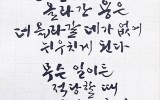 올라간 용은
더 올라갈 데가 없어
뉘우치게 된다
무슨 일이든
적당할 때